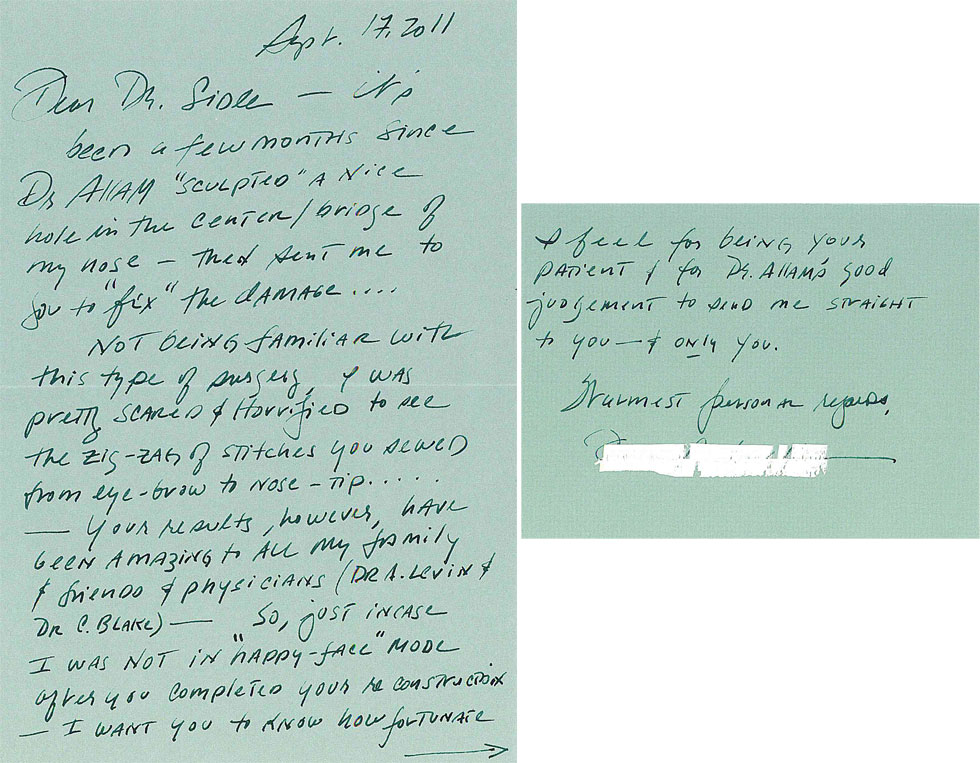 Sept. 17, 2011
Dear Dr. Sidle — it's
been a few months since
Dr Allam "sculpted" a nice
hole in the center/bridge of
my nose — then sent me to
you to "fix" the damage....
Not being familiar with
this type of surgery, I was
pretty scared & horrified to see
the zig-zag of stitches you sewed
from eye-brow to nose-tip.....
— Your results, however, have
been amazing to all my family
& friends & physicians (Dr A. Levin &
Dr C. Blake) — So, just incase
I was not in "happy-face" mode
after you completed your reconstruction
— I want you to know how fortunate
I feel for being your
patient & for Dr. Allam's good
judgement to send me straight
to you — & only you.
Warmest personal regards,